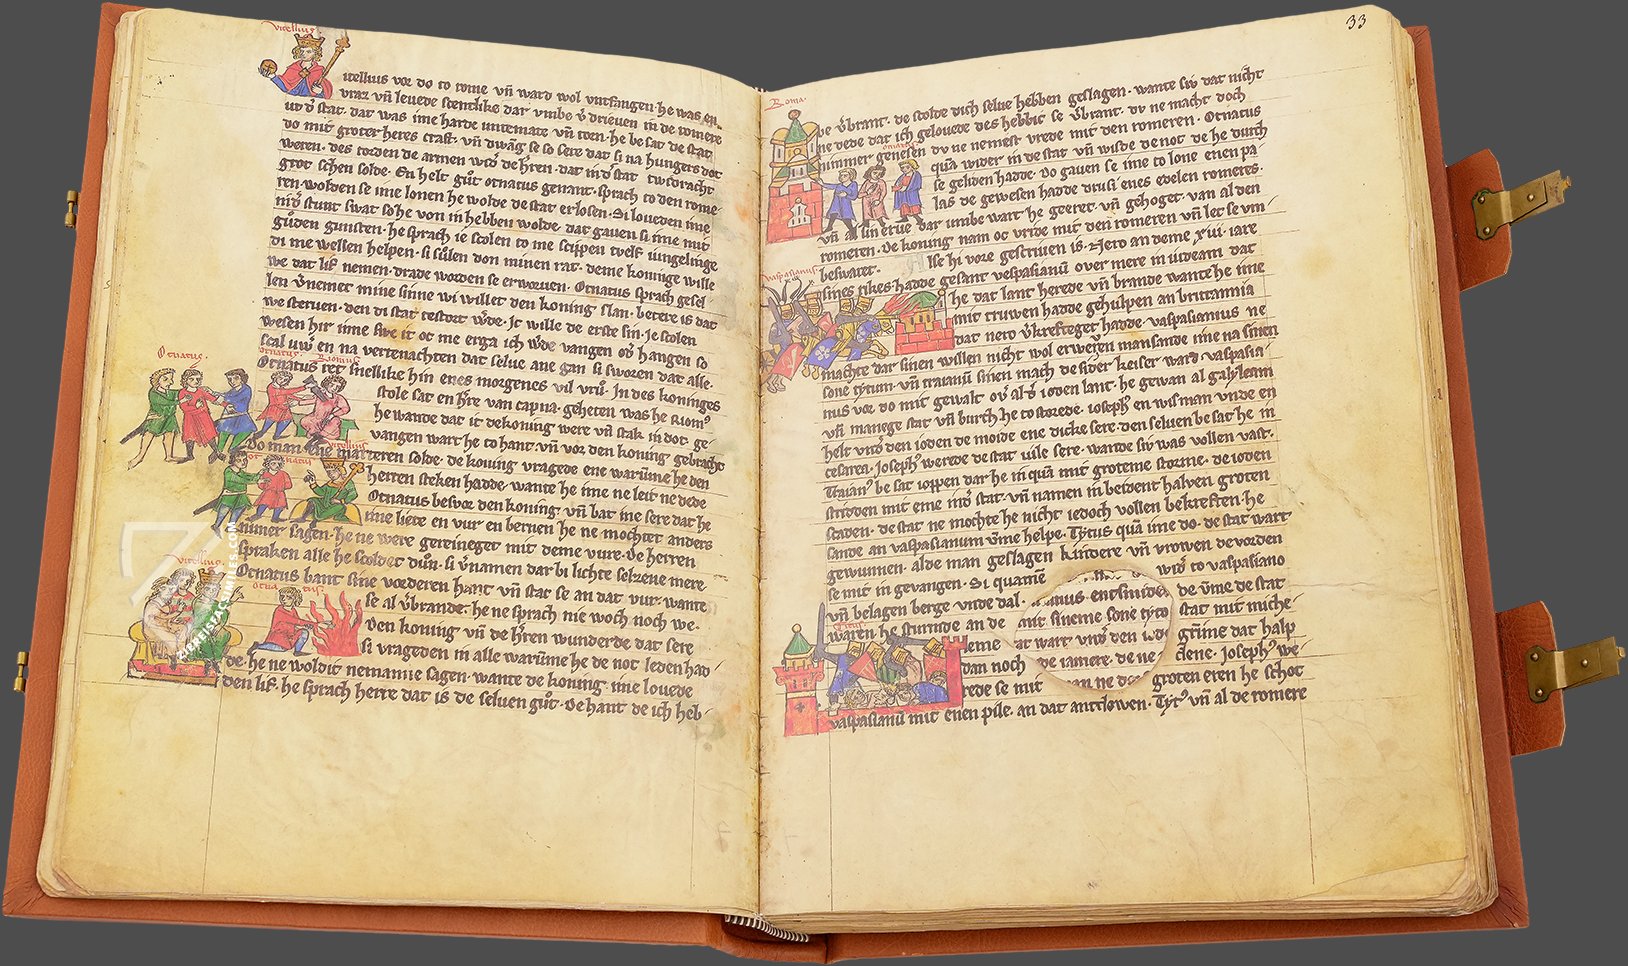 Vitellius
itellius vor do to rome vn̄ ward wol vntfangen· he was en
vraz vn̄ leuede scentlike dar vmbe v̓ dreuen in de romere
vt d̓ stat· dat was ime harde vntemate vn̄ torn· he be sat de stat
do mit groter heres craft· vn̄ dwāg se so sere dat si na hungers dot
weren· des torden de armen wid̓ de h̓ren· dat in d̓ stat twidracht
grot schen solde· En helt gůt otnatus genant· sprach to den rome
ren· wolden se ime lonen he wolde de stat er losen· Si loueden ime
nid̓ stunt swat so he von in hebben wolde· dat gauen si ime mit
gůden gunsten· he sprach ie scolen to me scippen twelf iungelinge
di me wellen helpen· si sůlen don minen rat· deme koninge wille
we dat lif nemen· drade worden se er woruen· Otnatus sprach gesel
len v̓nemet mine sinne wi willet den koning slan· betere is dat
we steruen· den di stat testort w̓de· Ic wille de erste sin· Ie scolen
wesen hir inne swe it oc me erga ich w̓de vangen od̓ hangen so
scal uw̓ en na vertenachten dat selue ane gan si sworen dat alle·
Otnatus·
otnatus· Riomus
Otnatus ret snellike hin enes morgenes vil vrů· In des koninges
stole sat en h̓re van capua· geheten was he Riom᾽
he wande dat it de koning were vn̄ stak in dot· ge
vangen wart he to hant· vn̄ vor den koning gebracht
Do man ene marteren solde· de koning vragede ene warůme he den
Vitellius
ot natus
herren steken hadde· wante he ime ne leit ne dede
Otnatus besvor den koning· vn̄ bat ime sere dat he
ime liete en vur en bernen he ne mochtet anders
nimer sagen· he ne were gereineget mit deme vure· De herren
spraken alle he scoldet důn· si v̓namen dar bi lichte selzene mere·
Vitellius·
Otnatus bant sine vorderen hant· vn̄ stac se an dat vur· wante
otna tus·
se al v̓brande· he ne sprach nie woch noch we·
Den koning vn̄ de h̓ren wunderde dat sere
si vrageden in alle warůme he de not leden had
de· he ne woldit nemanne sagen· wante de koning ime louede
den lif· he sprach herre dat is de seluen gůt· De hant de ich heb·
33
Roma·
be v̓brant· de scolde dich selue hebben geslagen· wante siv dat nicht
ne dede dat ich gelouete des hebbic se v̓brant· dv ne macht doch
nimmer genesen dv ne nemest vrede mit den romeren· Otnatus
quā wider in de stat vn̄ wisde de not de he durch
se geliden hadde· Do gauen se ime to lone enen pa
las de gewesen hadde drusi enes edelen romeres·
vn̄ al sin erue dar vmbe wart he geeret· vn̄ gehoget van al den
romeren· De koning nam oc vride mit den romeren vn̄ let se vm
besvaret· Alse hi vore gescriuen is· Nero an deme xiii· iare
Vaspasianus
sines rikes· hadde gesant vespasianū over mere in iudeam dat
he dat lant herede vn̄ brande wante he ime
mit truwen hadde gehulpen an brittannia
dat nero v̓krefteget hadde· vaspasianus ne
machte dar sinen willen nicht wol erwerven mansande ime na sinen
sone tytum· vn̄ traianū sinen mach de sider keiser ward vaspasia
nus vor do mit gewalt ov̓ al d̓ ioden lant· he gewan al galyleam
vn̄ manege stat vn̄ burch he to storede· ioseph᾽ en wis man vnde en
helt vntd̓ den ioden de moide ene dicke sere· den seluen be sat he in
cesarea· Ioseph᾽ werede de stat vile sere· wande siv was vollen vast·
Traian᾽ be sat ioppen dar he in quā mit groteme storme· de ioden
stridden mit eme ind̓ stat· vn̄ namen in beident haluen groten
scaden· de stat ne mochte he nicht iedoch vollen bekreften· he
sande an vaspasianum v̄me helpe· Tytus quā ime do· de stat wart
gewunnen· alde man geslagen kindere vn̄ vrowen de vorden
se mit in gevangen· Si quamē wid̓ to vaspasiano
vn̄ belagen berge vnde dal· ianus entsmidet de v̄me de stat
waren· he sturmde an de mit sineme sone tyto stat mit miche
leme at wart vnt̓ den iode grīme dat halp
dan noch de iamere· de ne clene· Ioseph᾽ we
rede se mit an ne de groten eren he schot
vaspasianū mit enen pile· an dat antlowen· Tyt᾽ vn̄ al de romere